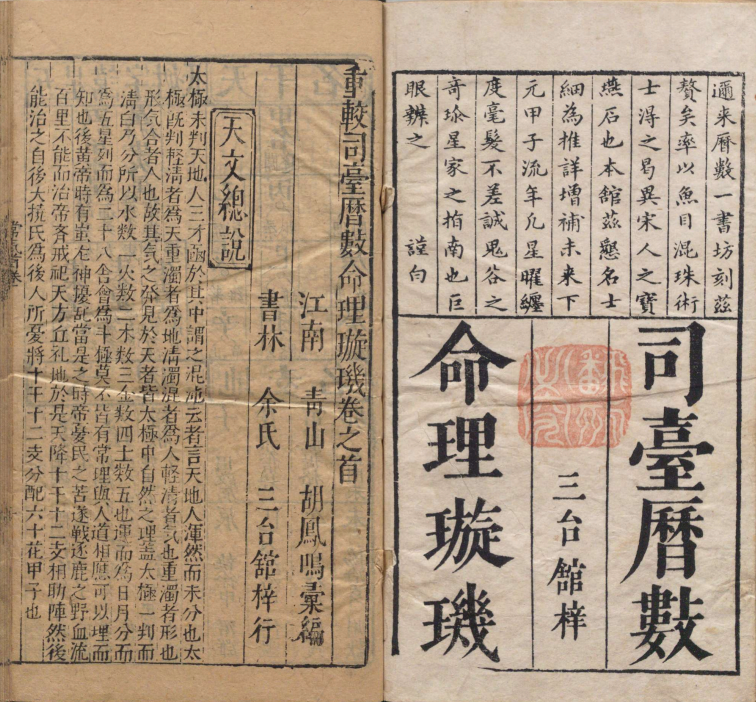 邇来曆數一書坊刻茲
贅矣率以魚目混珠術
士得之曷異宋人之寶
燕石也本舘茲懇名士
細為推詳增補未来下
元甲子流年凡星曜纏
度毫髮不差誠鬼谷之
竒珎星家之指南也巨
眼辨之 謹白
司臺曆數
三台舘梓
命理璇璣
重較司臺曆數命理璇璣卷之首
江南 青山 胡鳳鳴彙編
書林 余氏 三台舘梓行
天文總說
太極未判天地人三才函於其中謂之混沌云者言天地人渾然而未分也太
極既判輕清者為天重濁者為地清濁混者為人輕清者氣也重濁者形也
形氣合者人也故其氣之發見於天者皆太極中自然之理盖太極一判而
清白乃分所以水数一火数二木数三金数四土数五也運而為日月分而
為五星列而為二十八舍會為斗極莫不皆有常理與人道相應可以理而
知也後黄帝時有蚩尤神擾亂當是之時帝憂民之苦遂戰逐鹿之野血流
百里不能而治帝齊戒祀天方丘礼地於是天降十干十二支相助陣然後
能治之自後大撓氏為後人所憂將十干十二支分配六十花甲子也